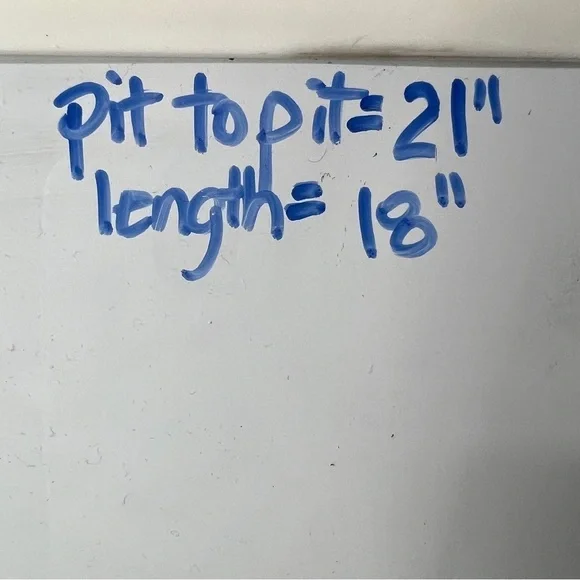 pit to pit= 21"
length= 18"